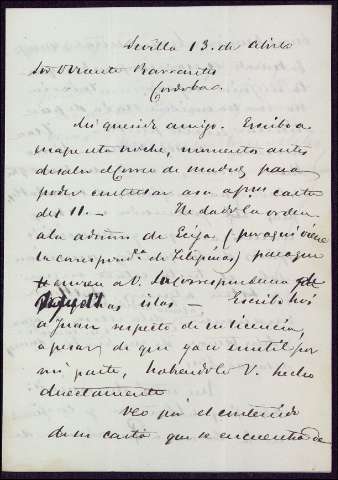 Sevilla 13. de Abril
Sor Dn Vicente Barrantes
Cordoba.
Mi querido amigo. Escribo a
esta noche, momentos antes
de salir el Correo de madrid para
poder contestar a su carta
del 11. — He dado la orden
a la admon de Ecija (por aqui viene
la correspond.a de Filipinas) para que
envien a V. la correspondencia de
aquellas islas — Escribo hoi
a Juan respecto de su licencia,
a pesar, de que ya es inutil por
mi parte, habiendolo V. hecho
directamente
Veo por el contenido
de su carta que se encuentra de